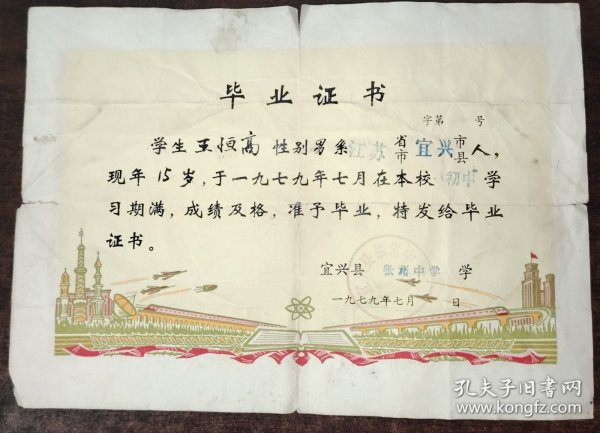 毕业证书
字第 号
学生王恒高 性别男系江苏省市宜兴市县人，
现年15岁，于一九七九年七月在本校初中学
习期满，成绩及格，准予毕业，特发给毕业
证书。
宜兴县 张渚中学 学
一九七九年七月 日
孔夫子旧书网
www.kongfz.com